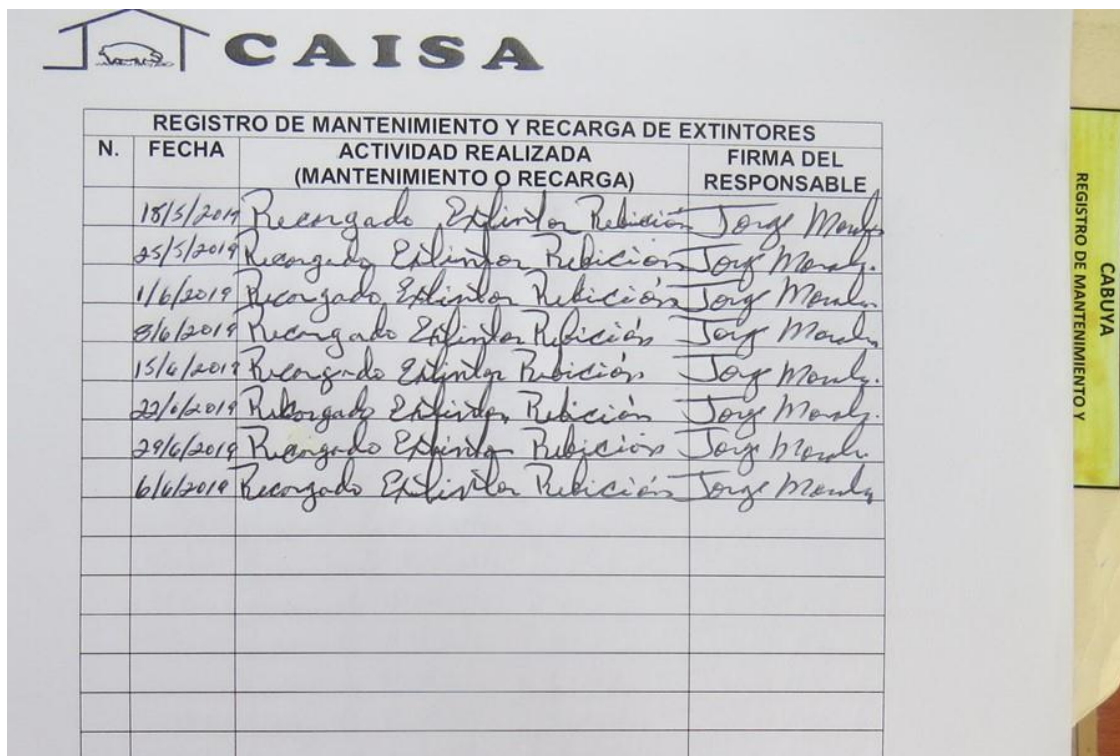 CAISA
REGISTRO DE MANTENIMIENTO Y RECARGA DE EXTINTORES
N. FECHA ACTIVIDAD REALIZADA (MANTENIMIENTO O RECARGA) FIRMA DEL RESPONSABLE
18/5/2019 Recargado Extintor Rebición Jorge Morales
25/5/2019 Recargado Extintor Rebición Jorge Morales
1/6/2019 Recargado Extintor Rebición Jorge Morales
8/6/2019 Recargado Extintor Rebición Jorge Morales
15/6/2019 Recargado Extintor Rebición Jorge Morales
22/6/2019 Recargado Extintor Rebición Jorge Morales
29/6/2019 Recargado Extintor Rebición Jorge Morales
6/6/2019 Recargado Extintor Rebición Jorge Morales
CABUYA
REGISTRO DE MANTENIMIENTO Y